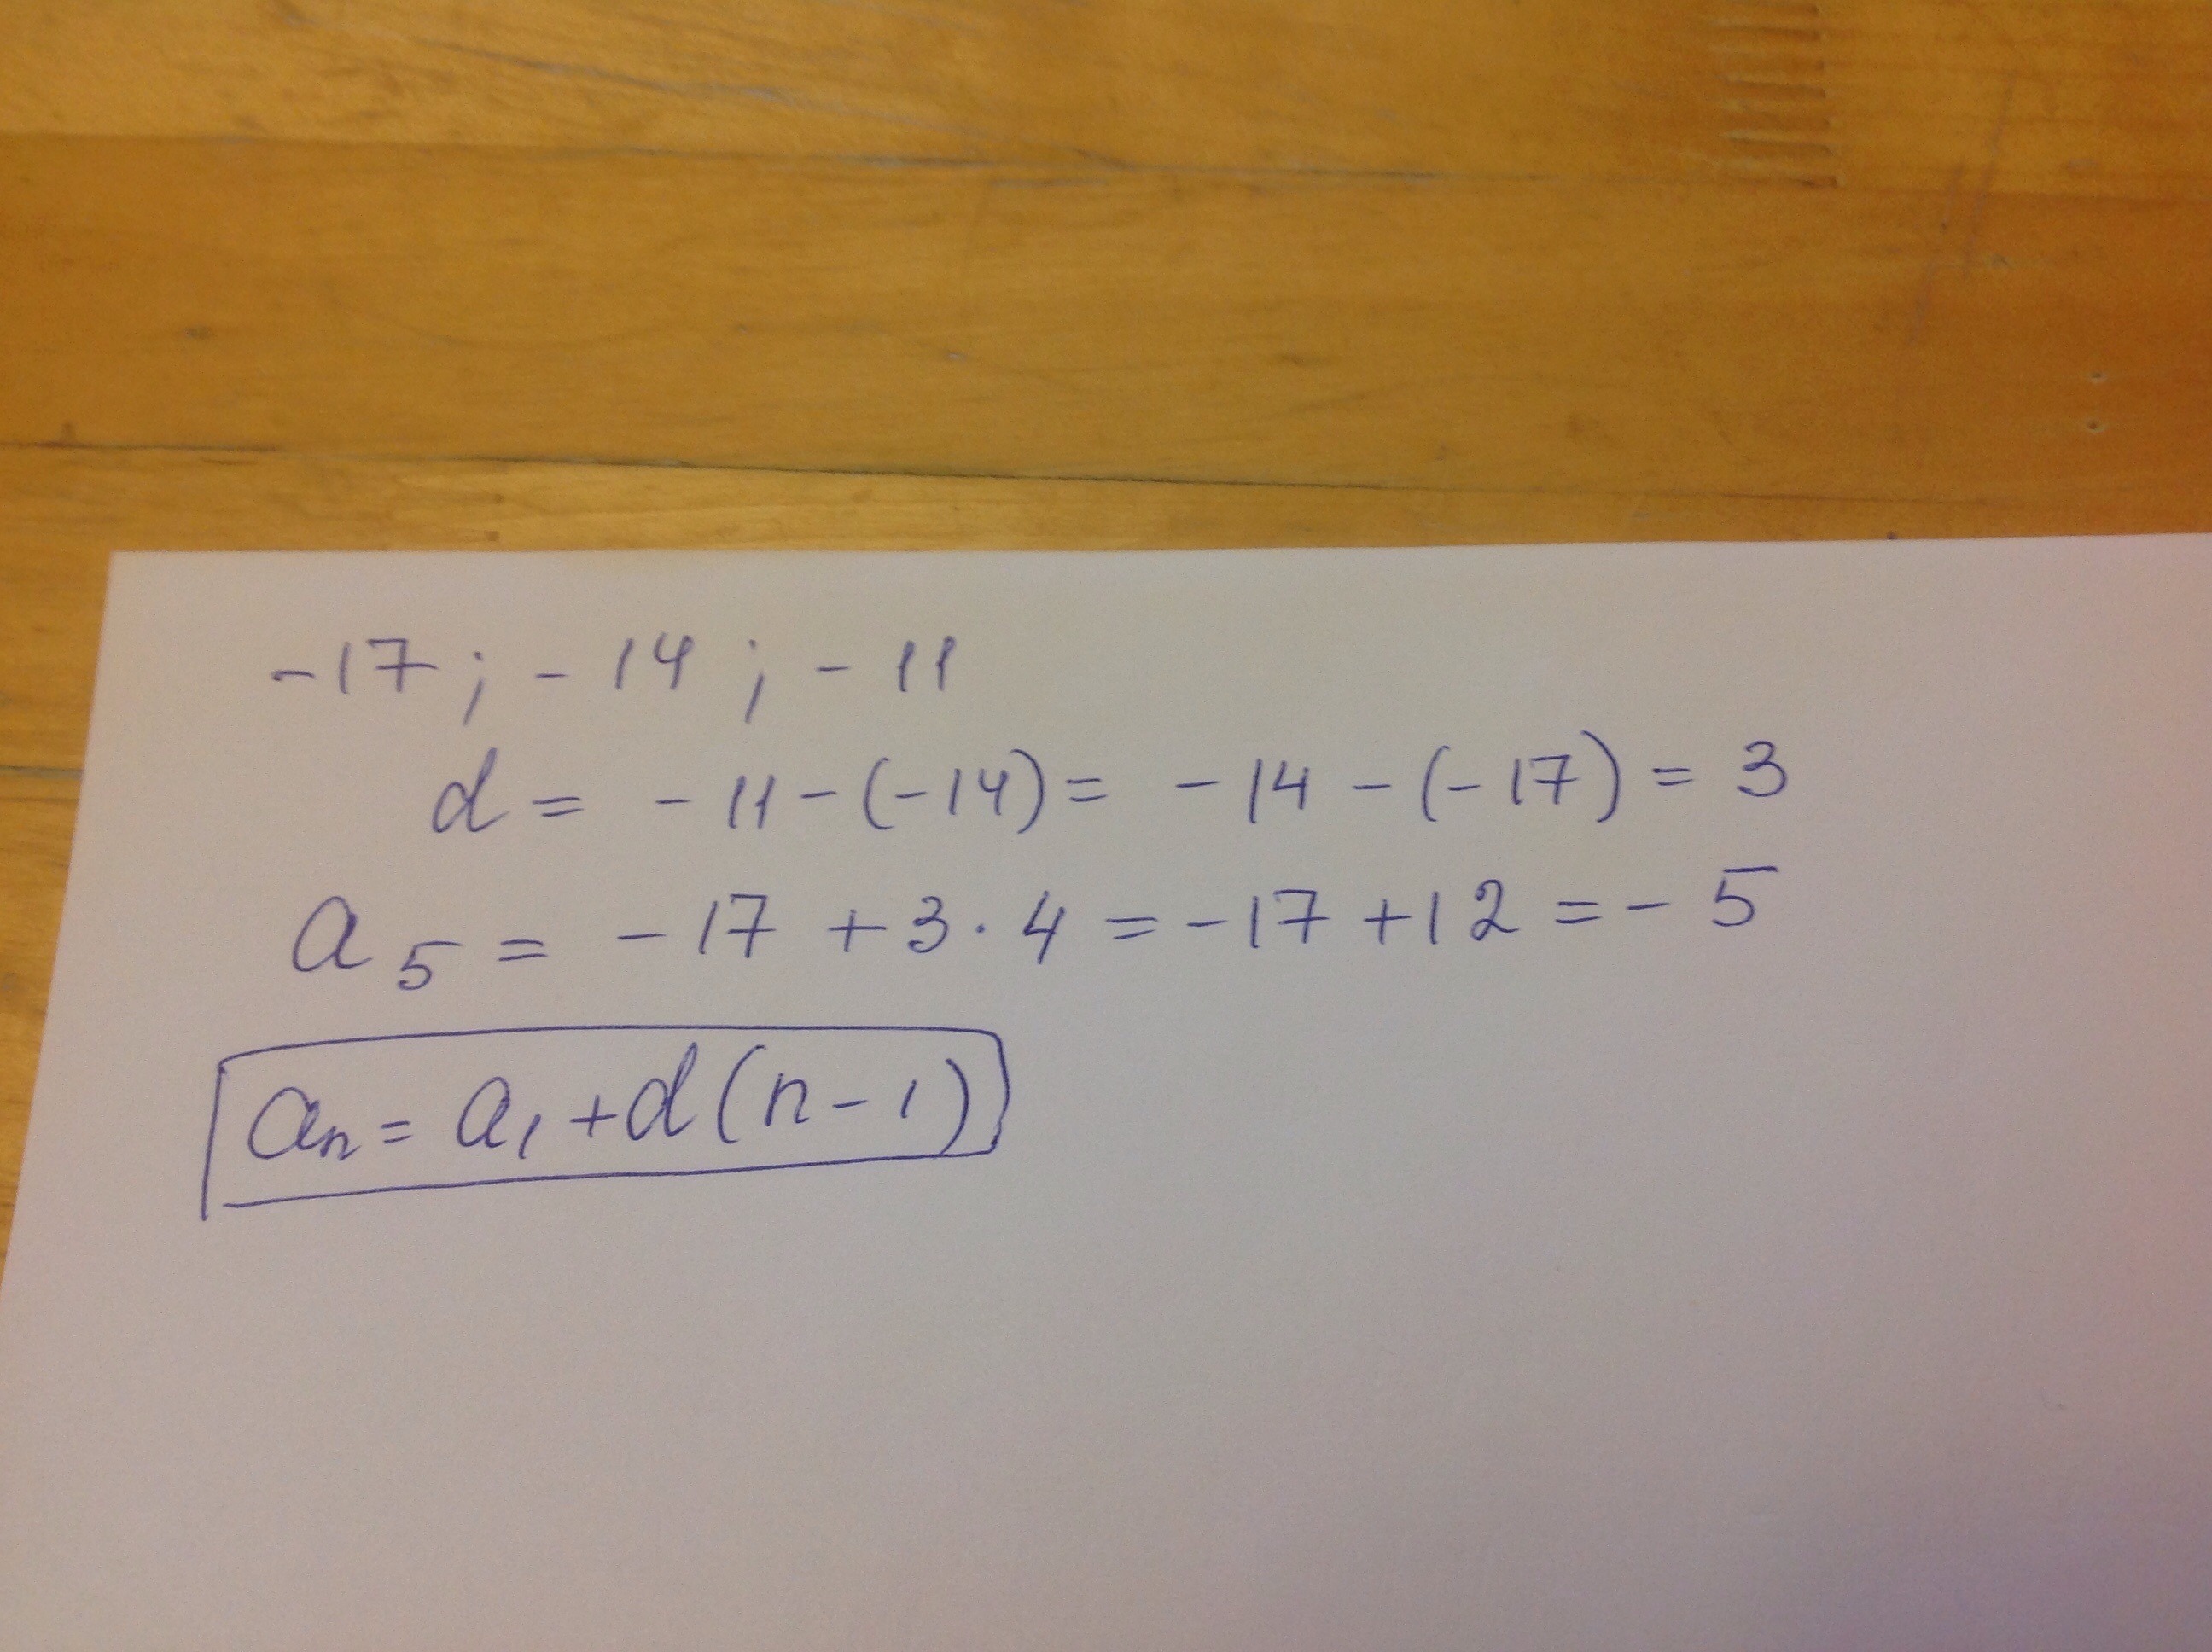 -17 ; - 14 ; - 11
d = - 11 - (-14) = - 14 - (- 17) = 3
a₅ = - 17 + 3 · 4 = - 17 + 12 = - 5
aₙ = a₁ + d (n - 1)